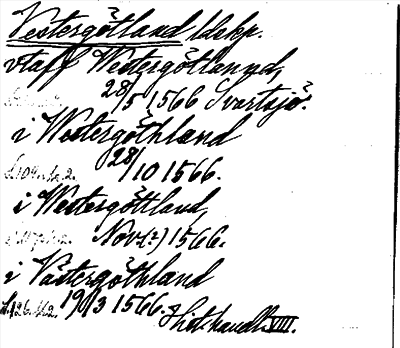 Vestergötland ldskp.
vtaff Westergötlannd,
28/5 1566 Svartsjö.
i Westergöthland
28/10 1566.
i Westergöttland,
Nov. (?) 1566.
i Västergöthland
19/3 1566.
Hist. handl. VIII.